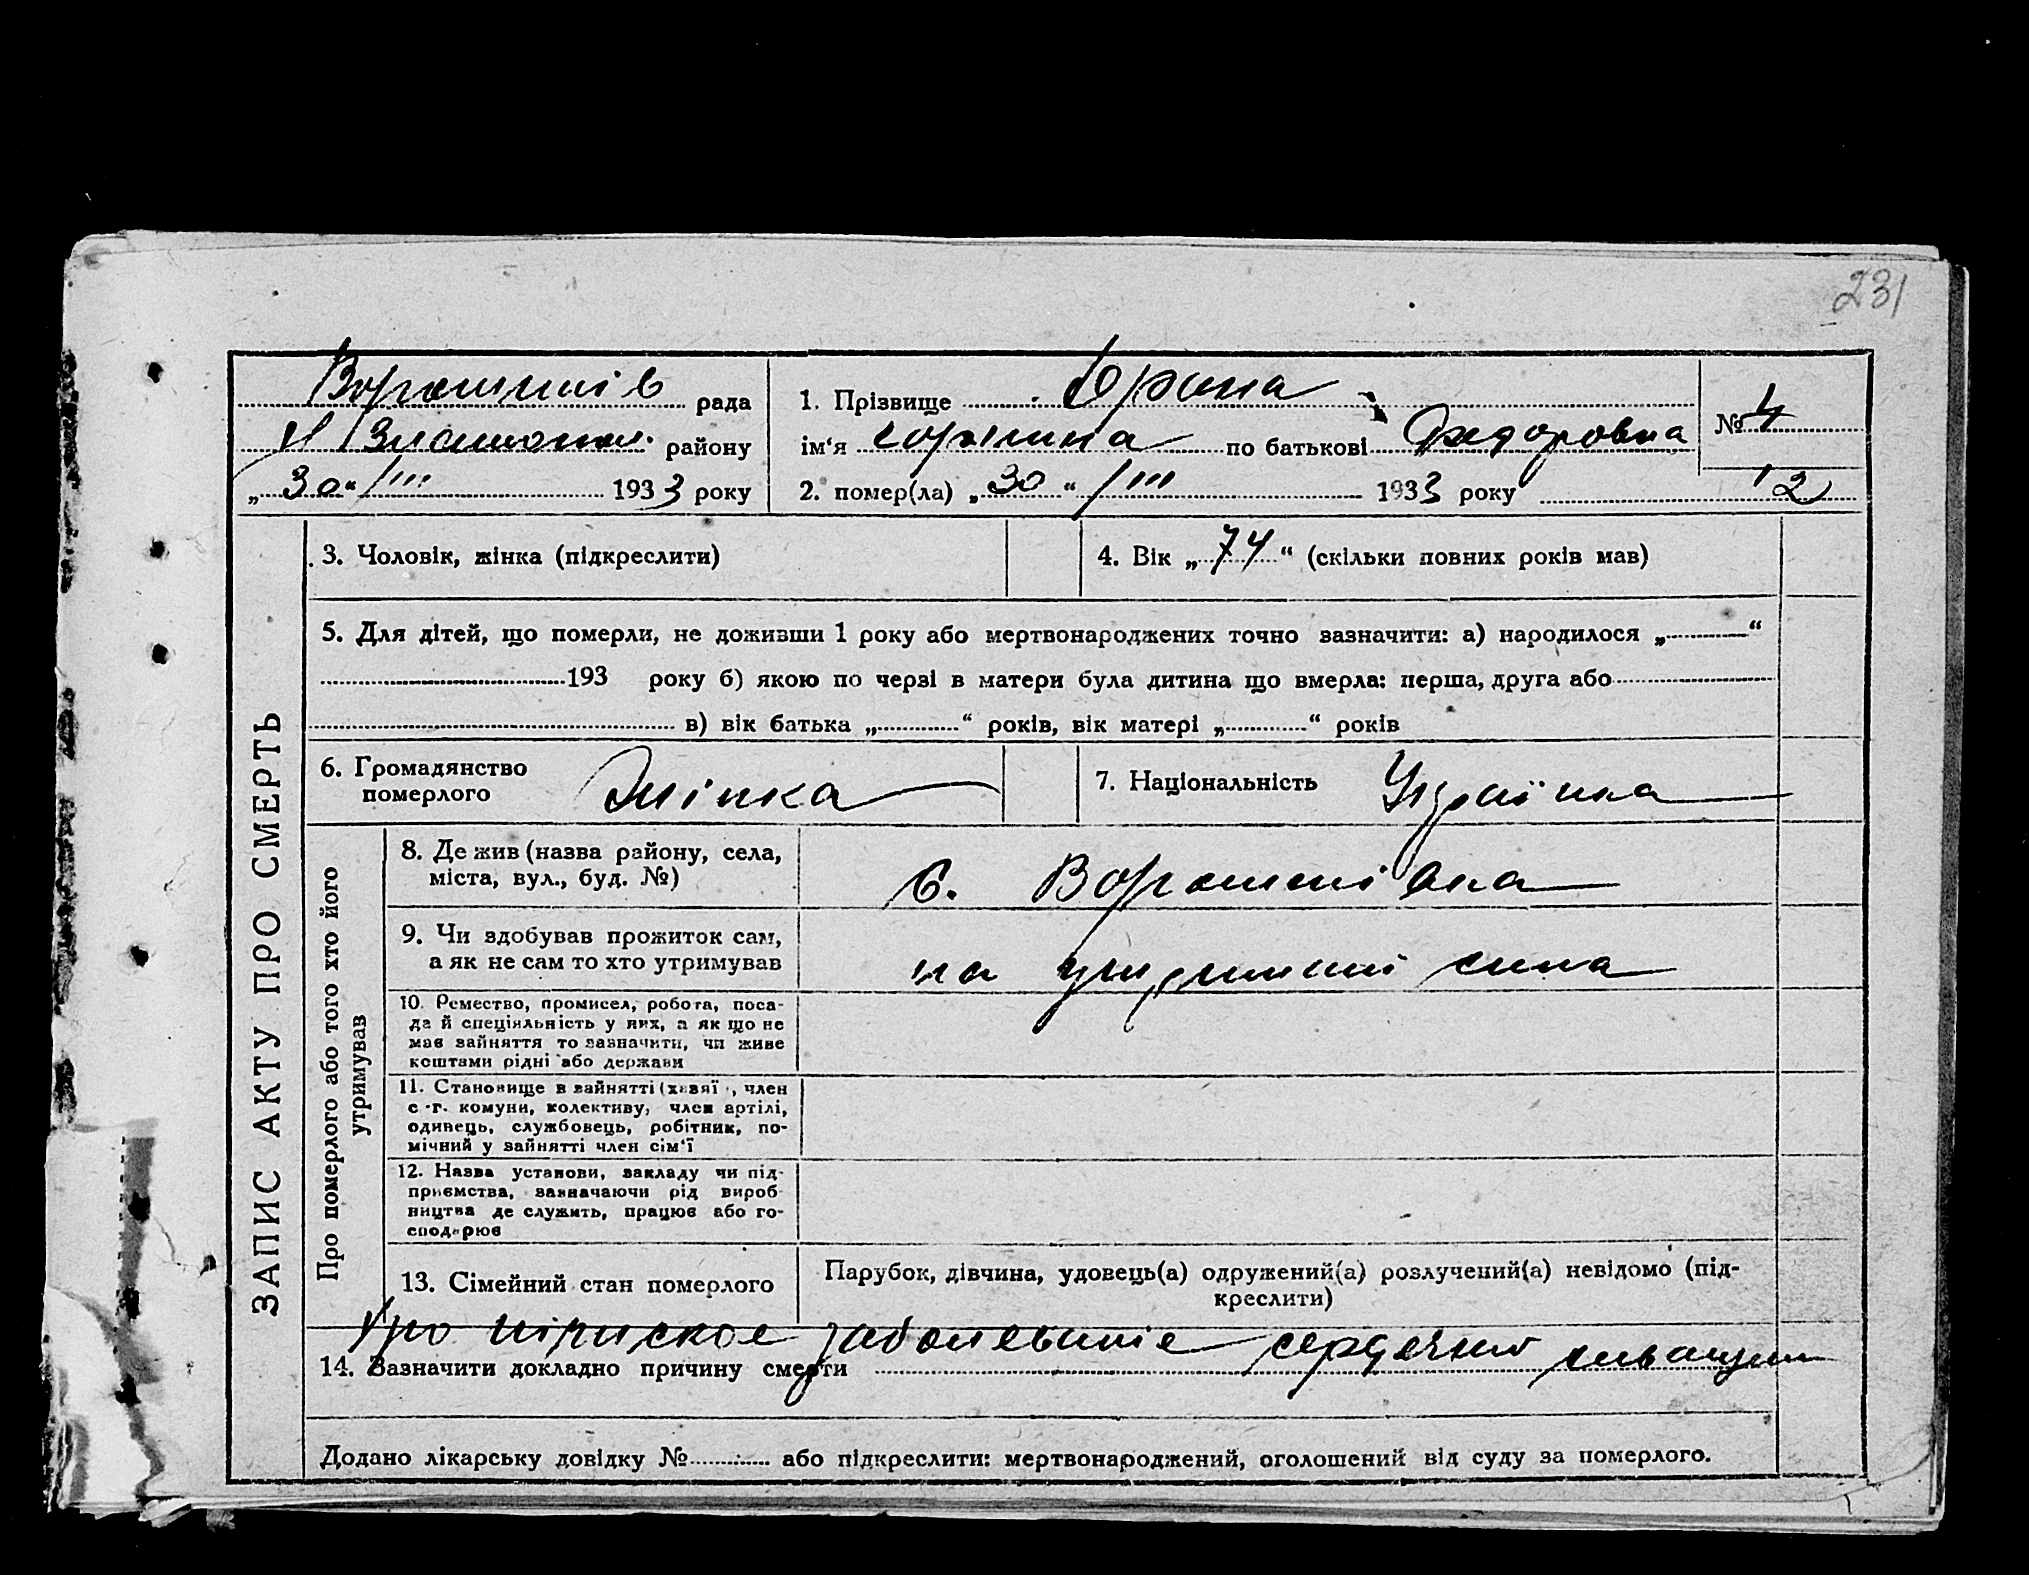 231
рада
району
„ 30 “ /III 1933 року
1. Прізвище
ім‘я по батькові Федоровна
№ 4
2. помер(ла) „ 30 “ /III 1933 року 12
ЗАПИС АКТУ ПРО СМЕРТЬ
3. Чоловік, жінка (підкреслити)
4. Вік „ 74 “ (скільки повних років мав)
5. Для дітей, що померли, не доживши 1 року або мертвонароджених точно зазначити: а) народилося „ “
193 року б) якою по черзі в матери була дитина що вмерла: перша, друга або
в) вік батька „ “ років, вік матері „ “ років
6. Громадянство
померлого
7. Національність Українка
Про померлого або того хто його
утримував
8. Де жив (назва району, села,
міста, вул., буд. №)
с.
9. Чи здобував прожиток сам,
а як не сам то хто утримував
на сина
10. Ремество, промисел, робота, поса-
да й спеціяльність у них, а як що не
мав зайняття то зазначити, чи живе
коштами рідні або держави
11. Становище в зайнятті (хазяї , член
с.-г. комуни, колективу, член артілі,
одинець, службовець, робітник, по-
мічний у зайнятті член сім‘ї
12. Назва установи, закладу чи під-
приємства, зазначаючи рід вироб-
ництва де служить, працює або го-
сподарює
13. Сімейний стан померлого
Парубок, дівчина, удовець(а) одружений(а) розлучений(а) невідомо (під-
креслити)
14. Зазначити докладно причину смерти
Додано лікарську довідку № або підкреслити: мертвонароджений, оголошений від суду за померлого.